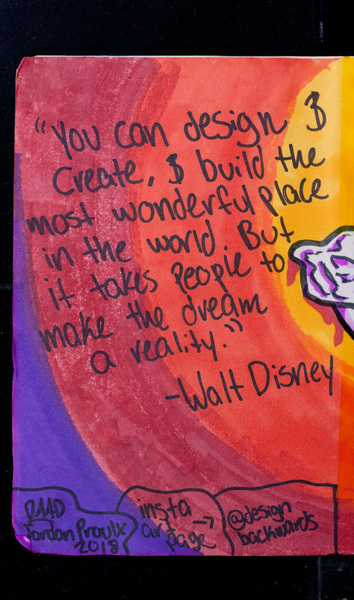 "You can design &
Create, & build the
most wonderful place
in the world. But
it takes people to
make the dream
a reality."
-Walt Disney
RAAD
Jordan Proulx
2018
insta
art
page →
@design
backwards